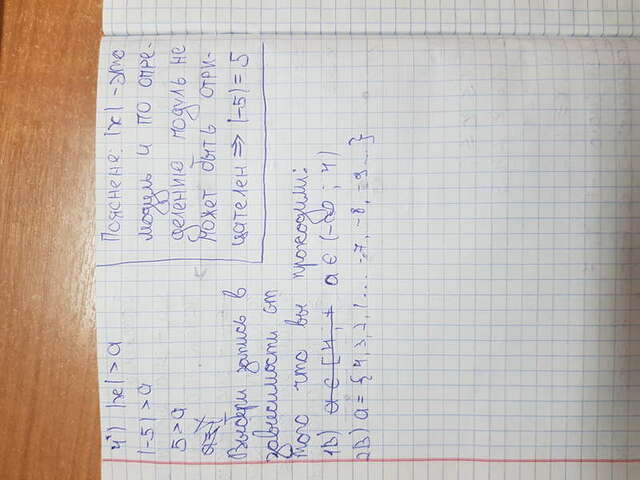 4) |x| > a
|-5| > a
5 > a
Пояснене: |x| - это
модуль и по опре-
делению модуль не
может быть отри-
цателен => |-5| = 5
Выбери запись в
зависимости от
того что вы проходили:
1В) a ∈ [4; + a ∈ (-∞; 4)
2В) a = {4, 3, 2, 1 ... -7, -8, -9 ...}